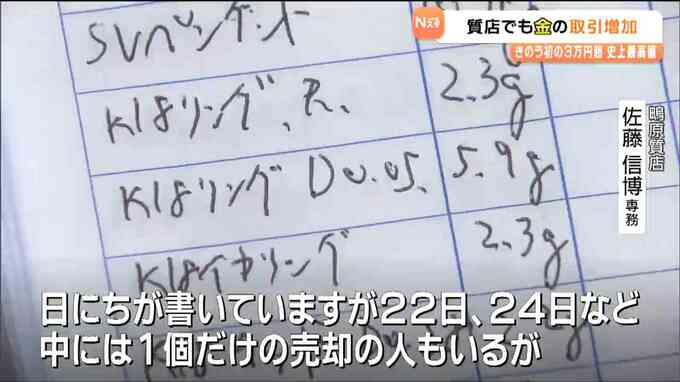 Nスタ
質店でも金の取引増加
きのう初の3万円超 史上最高値
鴫原質店
佐藤 信博 専務
SVペンダント
K18リング、R. 2.3g
K18リング D0.05. 5.9g
K18イヤリング 2.3g
日にちが書いていますが22日、24日など
中には1個だけの売却の人もいるが